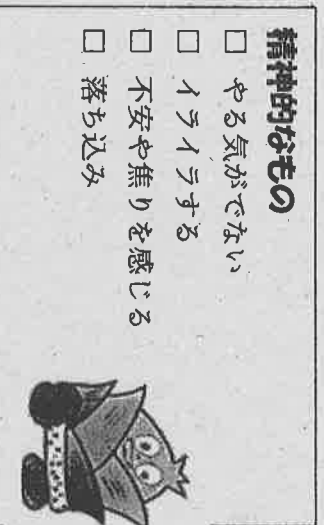 精神的なもの
□ やる気がでない
□ イライラする
□ 不安や焦りを感じる
□ 落ち込み